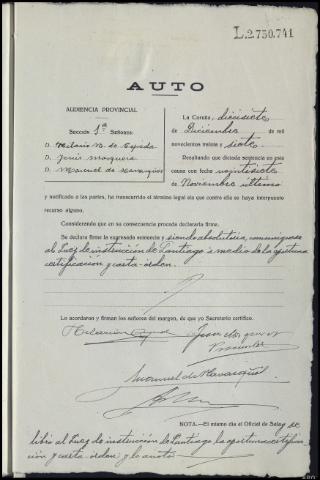 L.2750.741
AUTO
AUDIENCIA PROVINCIAL
Sección 1ª Señores:
D. Hilario N. de Cepeda
D. Jesús Mosquera
D. Manuel de
La Coruña, diecisiete
de Diciembre de mil
novecientos treinta y siete
Resultando que dictada sentencia en esta
causa con fecha veintisiete
de Noviembre último
y notificado a las partes, ha transcurrido el término legal sin que contra ella se haya interpuesto
recurso alguno.
Considerando que en su consecuencia procede declararla firme.
Se declara firme la expresada sentencia y siendo absolutoria, comuníquese
al Juez de instrucción de Santiago a medio de la oportuna
certificación y carta-orden.
Lo acordaron y firman los señores del margen, de que yo Secretario certifico.
NOTA.—El mismo día el Oficial de Sala se
libró al Juez de instrucción de Santiago la oportuna certifica-
ción y carta-orden; y lo anoto